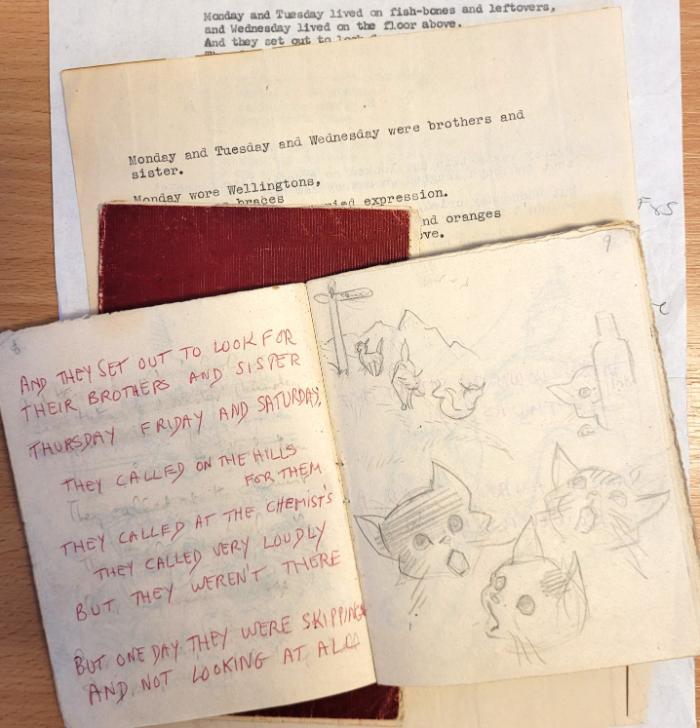 Monday and Tuesday lived on fish-bones and leftovers,
and Wednesday lived on the floor above.
And they set out to look
Monday and Tuesday and Wednesday were brothers and
sister.
Monday wore Wellingtons,
braces
expression.
and oranges
8
AND THEY SET OUT TO LOOK FOR
THEIR BROTHERS AND SISTER
THURSDAY FRIDAY AND SATURDAY,
THEY CALLED ON THE HILLS
FOR THEM
THEY CALLED AT THE CHEMIST'S
THEY CALLED VERY LOUDLY
BUT THEY WEREN'T THERE
BUT ONE DAY THEY WERE SKIPPING
AND NOT LOOKING AT ALL
9